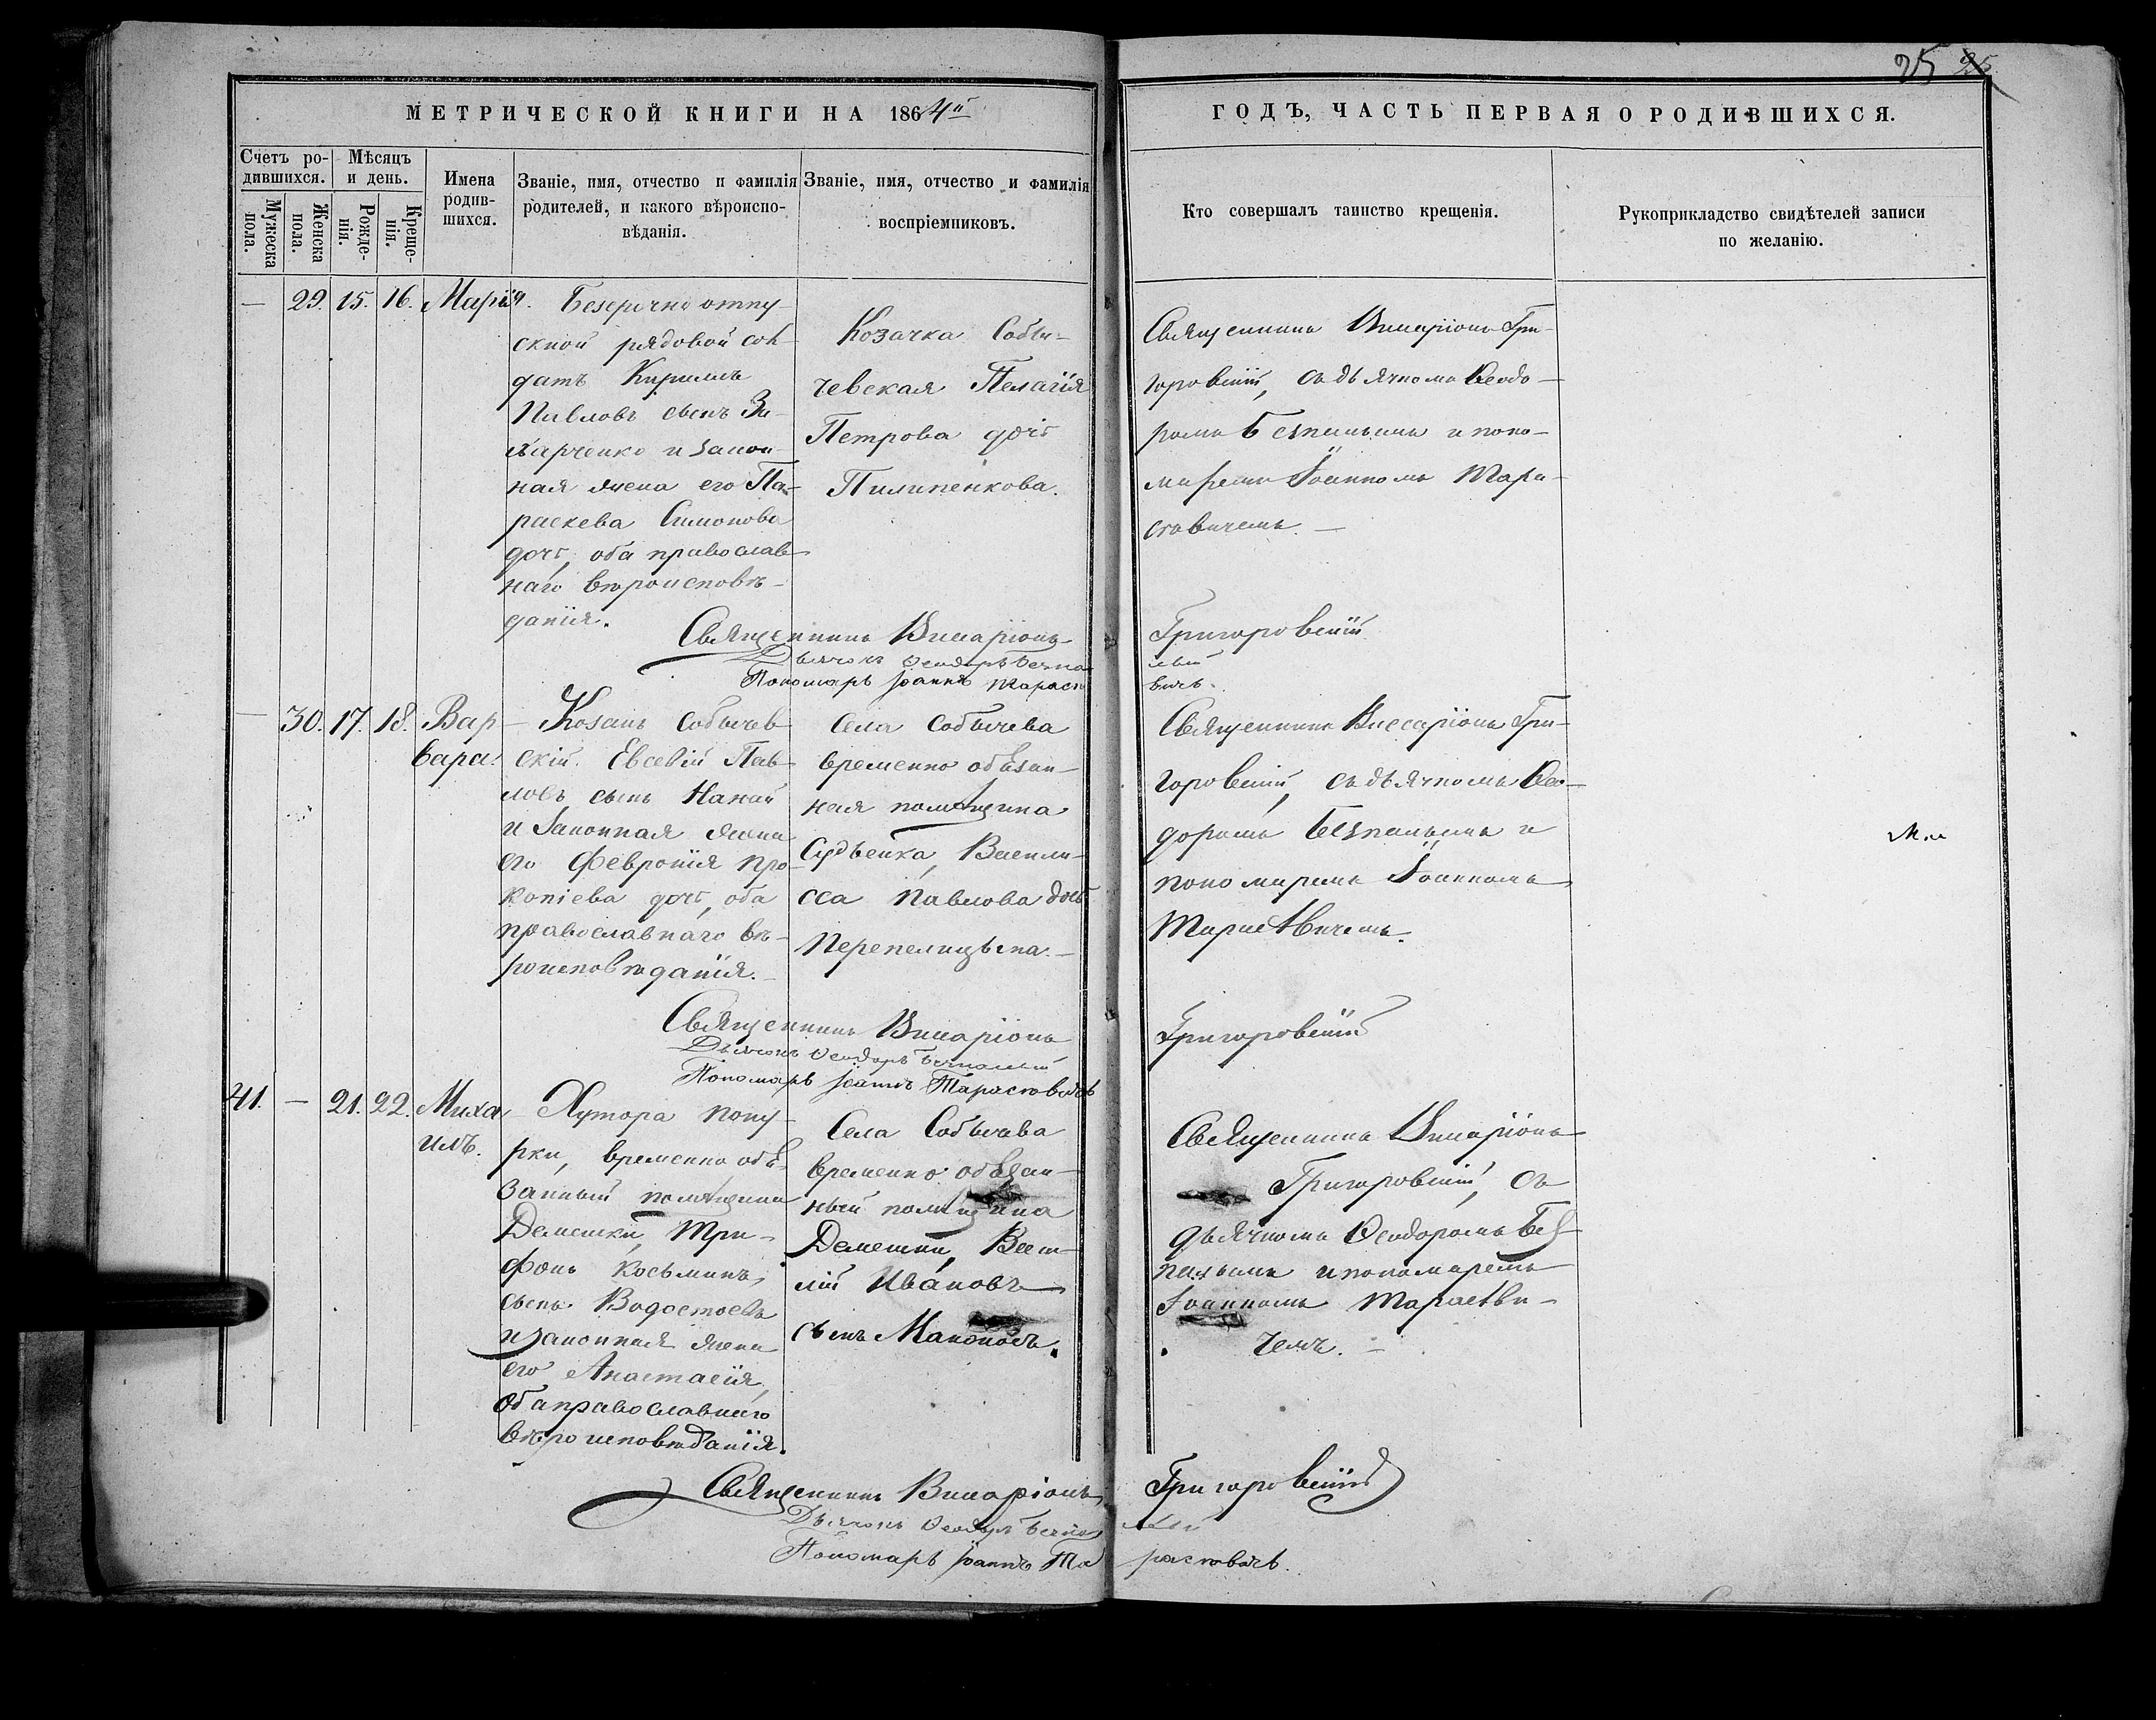 25 25
МЕТРИЧЕСКОЙ КНИГИ НА 1864й
ГОДЪ, ЧАСТЬ ПЕРВАЯ О РОДИВШИХСЯ.
Счетъ ро-
дившихся.
Мужеска
пола.
Женска
пола.
Мѣсяцъ
и день.
Рожде-
нія.
Креще-
нія.
Имена
родив-
шихся.
Званіе, имя, отчество и фамилія
родителей, и какого вѣроиспо-
вѣданія.
Званіе, имя, отчество и фамилія
воспріемниковъ.
Кто совершалъ таинство крещенія.
Рукоприкладство свидѣтелей записи
по желанію.
— 29. 15. 16. Марія.
Безсрочно отпу-
скной рядовой сол-
датъ Кирилъ
Павловъ сынъ За-
харченко и закон-
ная жена его Па-
раскева Симонова
дочь, оба православ-
наго вѣроисповѣ-
данія.
Козачка Собы-
чевская Пелагія
Петрова дочь
Пилипенкова.
Священникъ Виссаріонъ Гри-
горовскій, съ дьячкомъ Ѳеодо-
ромъ Безпалымъ и поно-
маремъ Іоанномъ Тара-
севичемъ. —
Священникъ Виссаріонъ Григоровскій
Дьячокъ Ѳеодоръ Безпалый
Пономарь Іоаннъ
— 30. 17. 18. Вар-
вара.
Козакъ Собычев-
скій Евсевій Пав-
ловъ сынъ
и законная жена
его Февронія Про-
копіева дочь, оба
православнаго вѣ-
роисповѣданія. —
Села Собычева
временно обязан-
ная помѣщика
Судьенка, Васили-
сса Павлова дочь
Перепелицына. —
Священникъ Виссаріонъ Гри-
горовскій, съ дьячкомъ Ѳео-
доромъ Безпалымъ и
пономаремъ Іоанномъ
Священникъ Виссаріонъ Григоровскій
Дьячокъ Ѳеодоръ Безпалый
Пономарь Іоаннъ
41. — 21. 22. Миха-
илъ.
Хутора
временно обя-
занный помѣщика
Демешки, Три-
фонъ Косьминъ
сынъ Водостоевъ
и законная жена
его Анастасія,
оба православнаго
вѣроисповѣданія.
Села Собычева
временно обязан-
ный помѣщика
Демешки, Васи-
лій Ивановъ
сынъ
Священникъ Виссаріонъ
Григоровскій, съ
дьячкомъ Ѳеодоромъ Без-
палымъ и пономаремъ
Іоанномъ
чемъ. —
Священникъ Виссаріонъ Григоровскій
Дьячокъ Ѳеодоръ Безпалый
Пономарь Іоаннъ